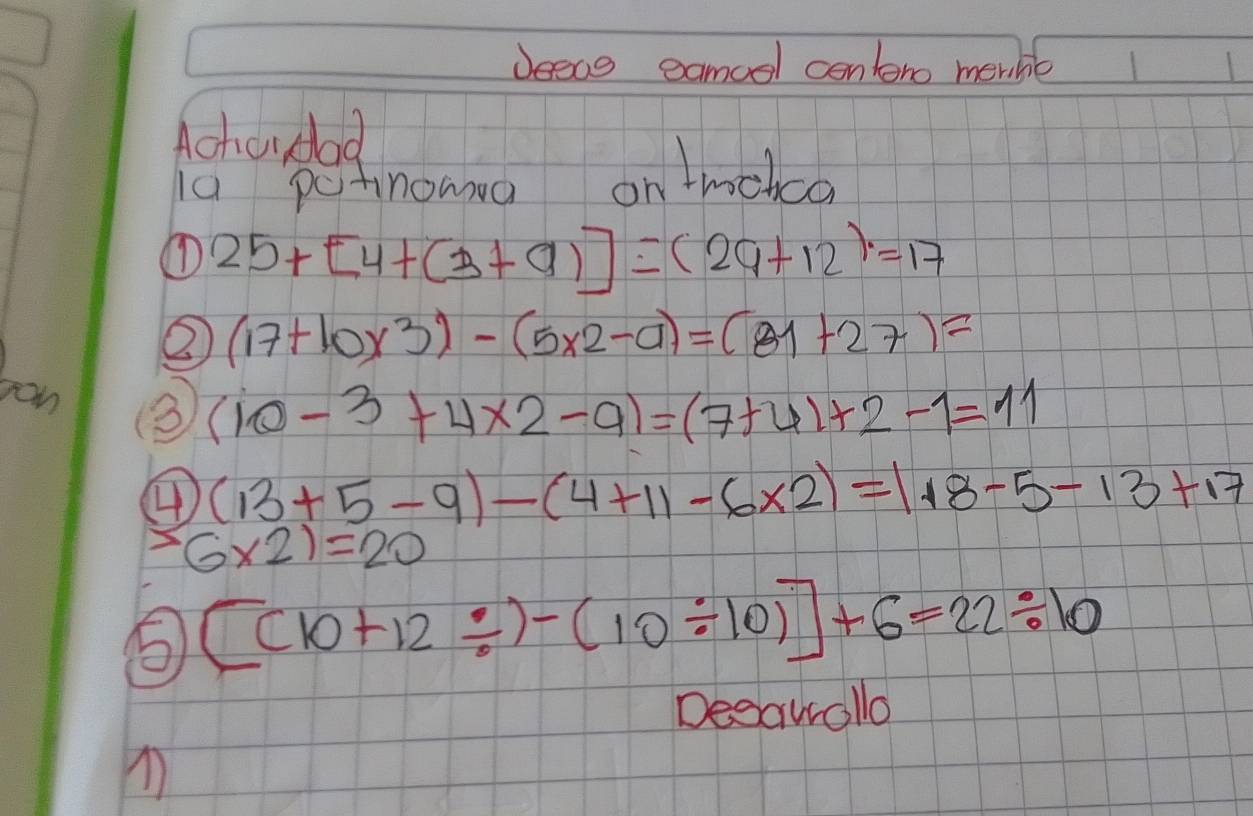 Jesus samuel centeno merino
Actividad
la potinomia aritmetica
① 25+[4+(3+9)]=(29+12)=17
② (17+10×3)-(5×2-9)=(81+27)=
③ (10-3+4×2-9)=(7+4)+2-1=11
④ (13+5-9)-(4+11-6×2)=(18-5-13+17
6×2)=20
⑤ [(10+12÷)-(10÷10)]+6=22÷10
Desarrollo
1)